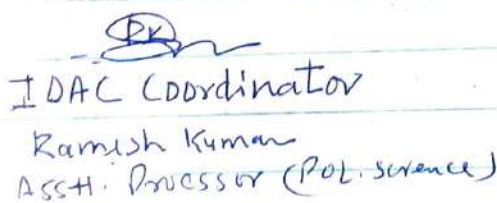 IDAC Coordinator
Ramesh Kumar
Asstt. Prossor (Pol. Science)